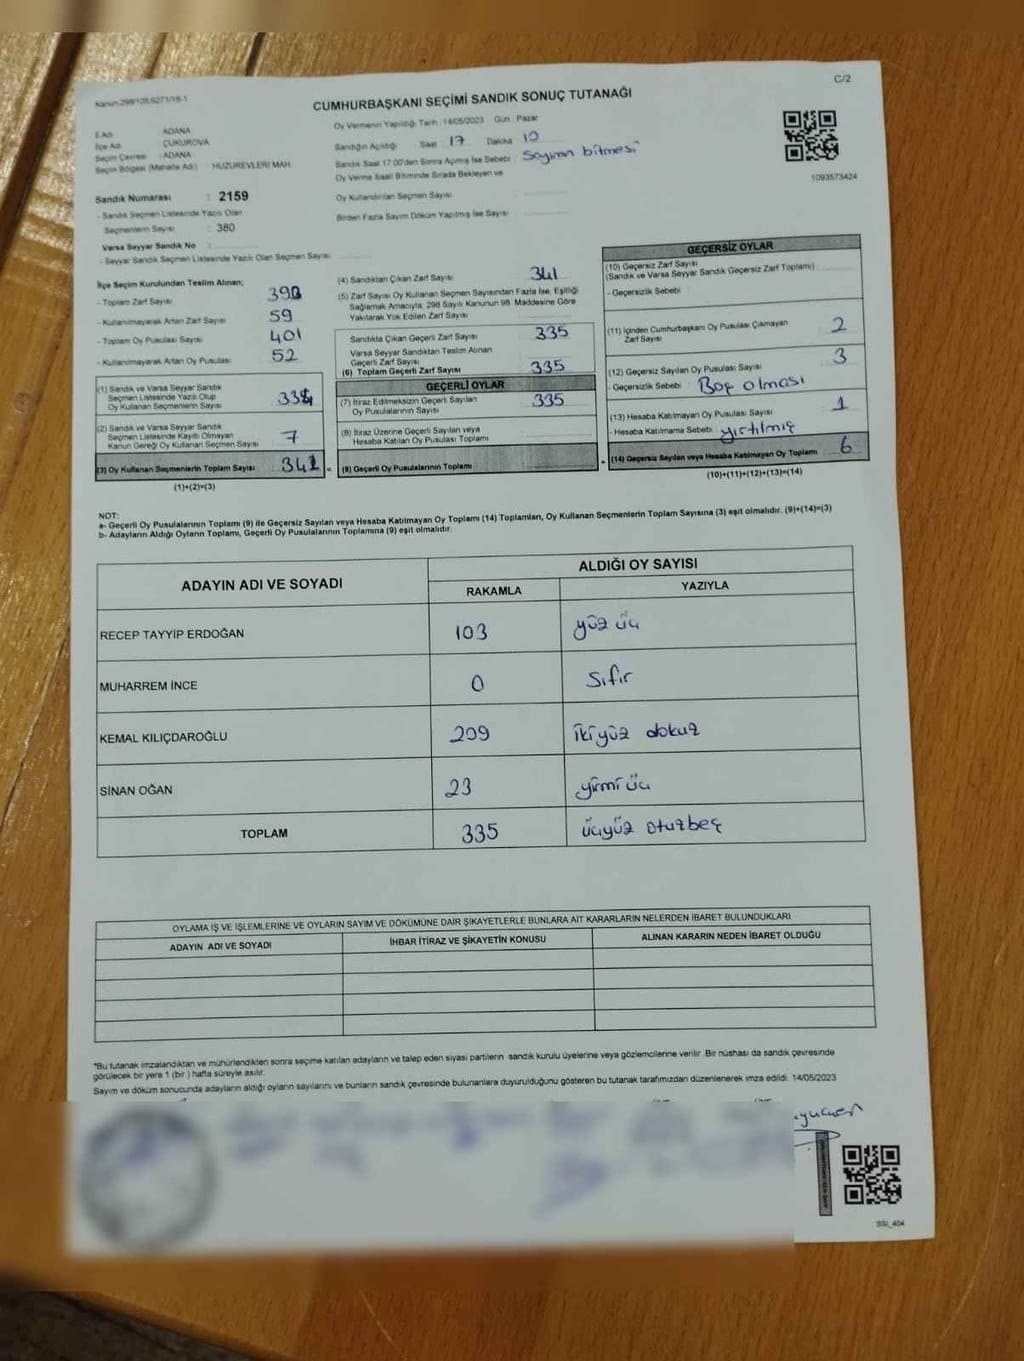 Kanun:298/105;6271/18-1
C/2
CUMHURBAŞKANI SEÇİMİ SANDIK SONUÇ TUTANAĞI
İl Adı : ADANA
İlçe Adı : ÇUKUROVA
Seçim Çevresi : ADANA
Seçim Bölgesi (Mahalle Adı) HUZUREVLERİ MAH
Sandık Numarası : 2159
- Sandık Seçmen Listesinde Yazılı Olan
Seçmenlerin Sayısı : 380
Varsa Seyyar Sandık No :
- Seyyar Sandık Seçmen Listesinde Yazılı Olan Seçmen Sayısı:
Oy Vermenin Yapıldığı Tarih : 14/05/2023 Gün : Pazar
Sandığın Açıldığı Saat 17 Dakika 10
Sandık Saat 17:00'den Sonra Açılmış İse Sebebi Sayımın bitmesi
Oy Verme Saati Bitiminde Sırada Bekleyen ve
Oy Kullandırılan Seçmen Sayısı
Birden Fazla Sayım Döküm Yapılmış İse Sayısı
1093573424
İlçe Seçim Kurulundan Teslim Alınan;
- Toplam Zarf Sayısı
- Kullanılmayarak Artan Zarf Sayısı 59
- Toplam Oy Pusulası Sayısı 401
- Kullanılmayarak Artan Oy Pusulası 52
(1) Sandık ve Varsa Seyyar Sandık
Seçmen Listesinde Yazılı Olup
Oy Kullanan Seçmenlerin Sayısı
(2) Sandık ve Varsa Seyyar Sandık
Seçmen Listesinde Kayıtlı Olmayan
Kanun Gereği Oy Kullanan Seçmen Sayısı 7
(3) Oy Kullanan Seçmenlerin Toplam Sayısı
(1)+(2)=(3)
(4) Sandıktan Çıkan Zarf Sayısı 341
(5) Zarf Sayısı Oy Kullanan Seçmen Sayısından Fazla İse, Eşitliği
Sağlamak Amacıyla, 298 Sayılı Kanunun 98. Maddesine Göre
Yakılarak Yok Edilen Zarf Sayısı
Sandıkta Çıkan Geçerli Zarf Sayısı 335
Varsa Seyyar Sandıktan Teslim Alınan
Geçerli Zarf Sayısı
(6) Toplam Geçerli Zarf Sayısı 335
GEÇERLİ OYLAR
(7) İtiraz Edilmeksizin Geçerli Sayılan
Oy Pusulalarının Sayısı 335
(8) İtiraz Üzerine Geçerli Sayılan veya
Hesaba Katılan Oy Pusulası Toplamı
(9) Geçerli Oy Pusulalarının Toplamı
GEÇERSİZ OYLAR
(10) Geçersiz Zarf Sayısı
(Sandık ve Varsa Seyyar Sandık Geçersiz Zarf Toplamı)
- Geçersizlik Sebebi
(11) İçinden Cumhurbaşkanı Oy Pusulası Çıkmayan
Zarf Sayısı 2
(12) Geçersiz Sayılan Oy Pusulası Sayısı 3
- Geçersizlik Sebebi Boş olması
(13) Hesaba Katılmayan Oy Pusulası Sayısı 1
- Hesaba Katılmama Sebebi yırtılmış
(14) Geçersiz Sayılan veya Hesaba Katılmayan Oy Toplamı 6
(10)+(11)+(12)+(13)=(14)
NOT:
a- Geçerli Oy Pusulalarının Toplamı (9) ile Geçersiz Sayılan veya Hesaba Katılmayan Oy Toplamı (14) Toplamları, Oy Kullanan Seçmenlerin Toplam Sayısına (3) eşit olmalıdır. (9)+(14)=(3)
b- Adayların Aldığı Oyların Toplamı, Geçerli Oy Pusulalarının Toplamına (9) eşit olmalıdır.
ADAYIN ADI VE SOYADI
ALDIĞI OY SAYISI
RAKAMLA YAZIYLA
RECEP TAYYİP ERDOĞAN 103 yüz üç
MUHARREM İNCE 0 Sıfır
KEMAL KILIÇDAROĞLU 209 İki yüz dokuz
SİNAN OĞAN 23 yirmi üç
TOPLAM 335 üçyüz otuzbeş
OYLAMA İŞ VE İŞLEMLERİNE VE OYLARIN SAYIM VE DÖKÜMÜNE DAİR ŞİKAYETLERLE BUNLARA AİT KARARLARIN NELERDEN İBARET BULUNDUKLARI
ADAYIN ADI VE SOYADI İHBAR İTİRAZ VE ŞİKAYETİN KONUSU ALINAN KARARIN NEDEN İBARET OLDUĞU
*Bu tutanak imzalandıktan ve mühürlendikten sonra seçime katılan adayların ve talep eden siyasi partilerin sandık kurulu üyelerine veya gözlemcilerine verilir. Bir nüshası da sandık çevresinde
görülecek bir yere 1 (bir) hafta süreyle asılır.
Sayım ve döküm sonucunda adayların aldığı oyların sayılarını ve bunların sandık çevresinde bulunanlara duyurulduğunu gösteren bu tutanak tarafımızdan düzenlenerek imza edildi. 14/05/2023
SSI_404